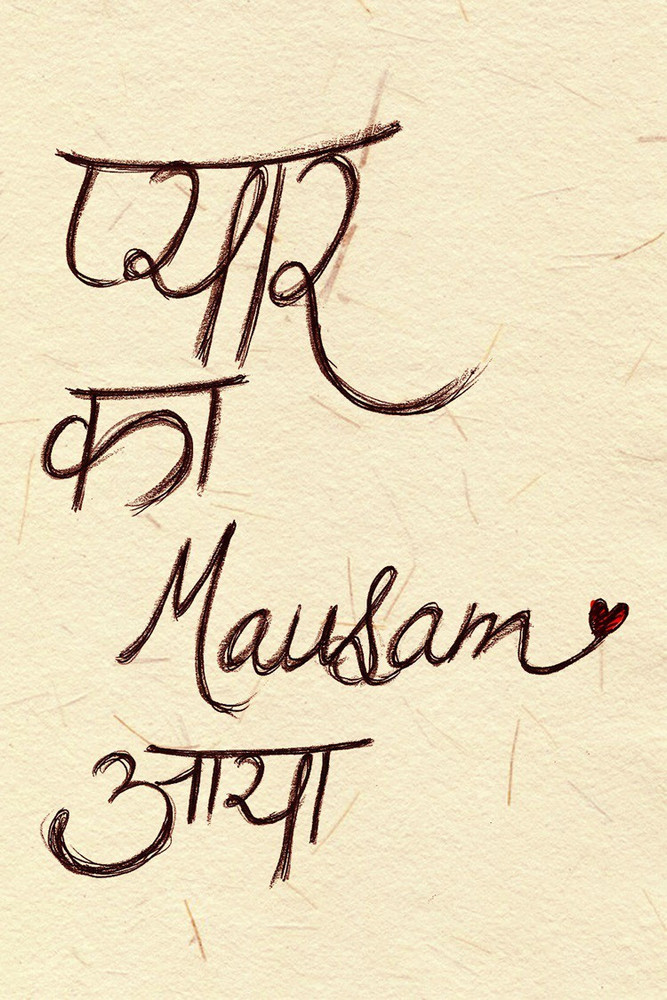 प्यार
का
Mausam
आया